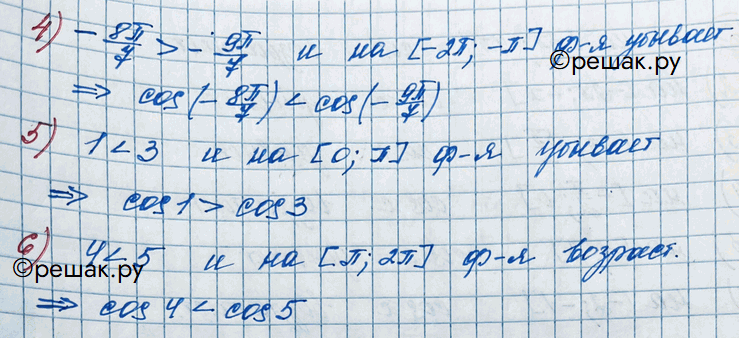 4) -8π/7 > -9π/7 и на [-2π; -π] ф-я убывает.
©решак.ру
⇒ cos(-8π/7) < cos(-9π/7)
5) 1 < 3 и на [0; π] ф-я убывает
⇒ cos1 > cos3
6) 4 < 5 и на [π; 2π] ф-я возраст.
©решак.ру
⇒ cos4 < cos5